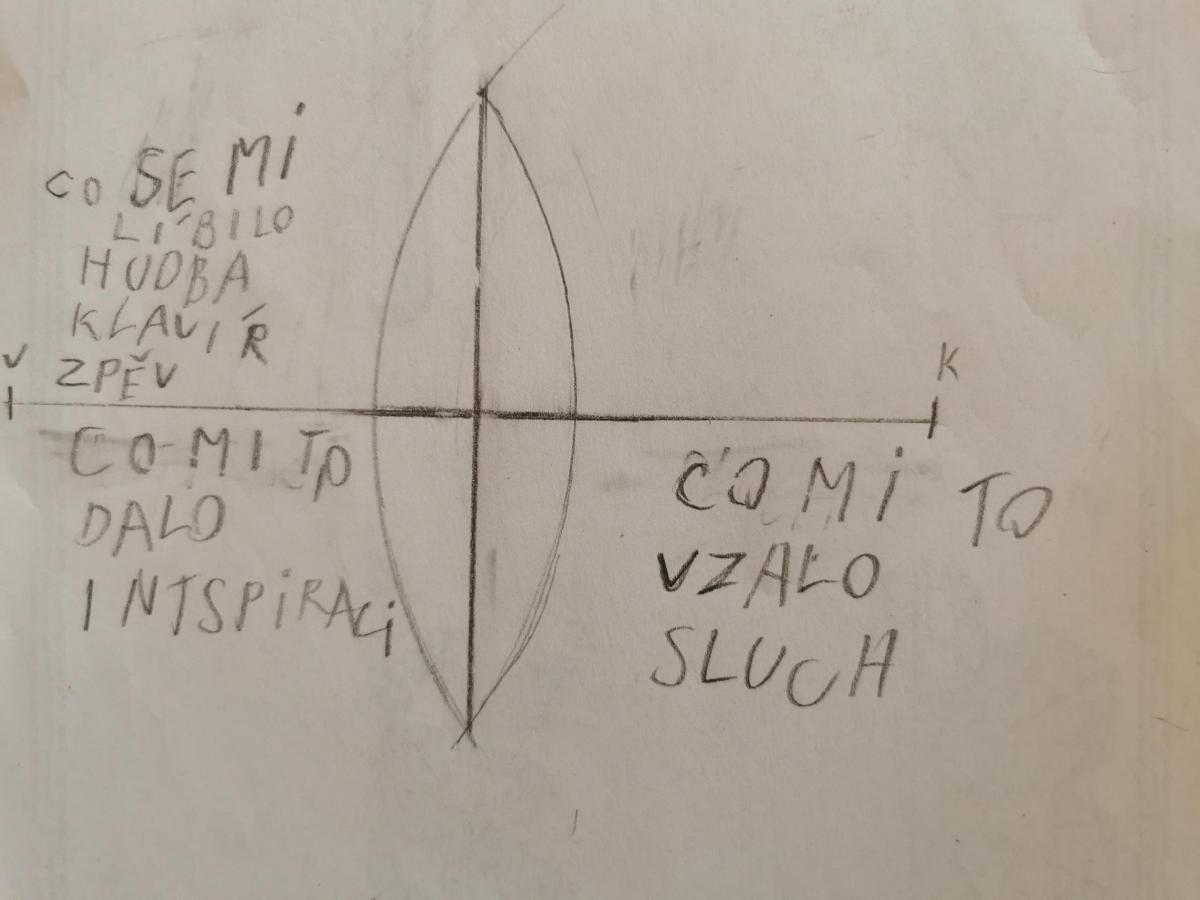 CO SE MI
LÍBILO
HUDBA
KLAVÍR
ZPĚV
V
K
CO MI TO
DALO
INTSPIRACI
CO MI TO
VZALO
SLUCH